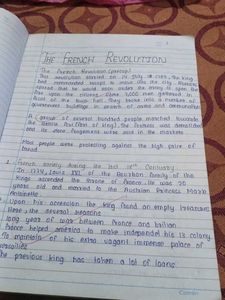 THE FRENCH REVOLUTION
The French Revolution (
This revolution started on 14 July
had commanded troops to move into the city. Rumours
spread that he would soon order the army to open fire
upon the citizens. Some 7,000 men gathered in
front of the town hall. They broke into a number of
government buildings in search of arms and ammunition
A group of several hundred people marched towards
the Bastille The fortress was demolished
and its stone fragments were sold in the markets
Most people were protesting against the high price of
bread
French society during the last 18th Century
In 1774, Louis XVI of the Bourbon family of the
Kings ascended the throne of France. He was 20
years old and married to the Austrian Princess Marie
Antoinette
Upon his accession the king found an empty treasures
Here the several reasons
long year of war between France and britian
France helped america to make independent his 13 colony
To maintain of his extra vagant immense palace of
versailles
The previous king has taken a lot of loans